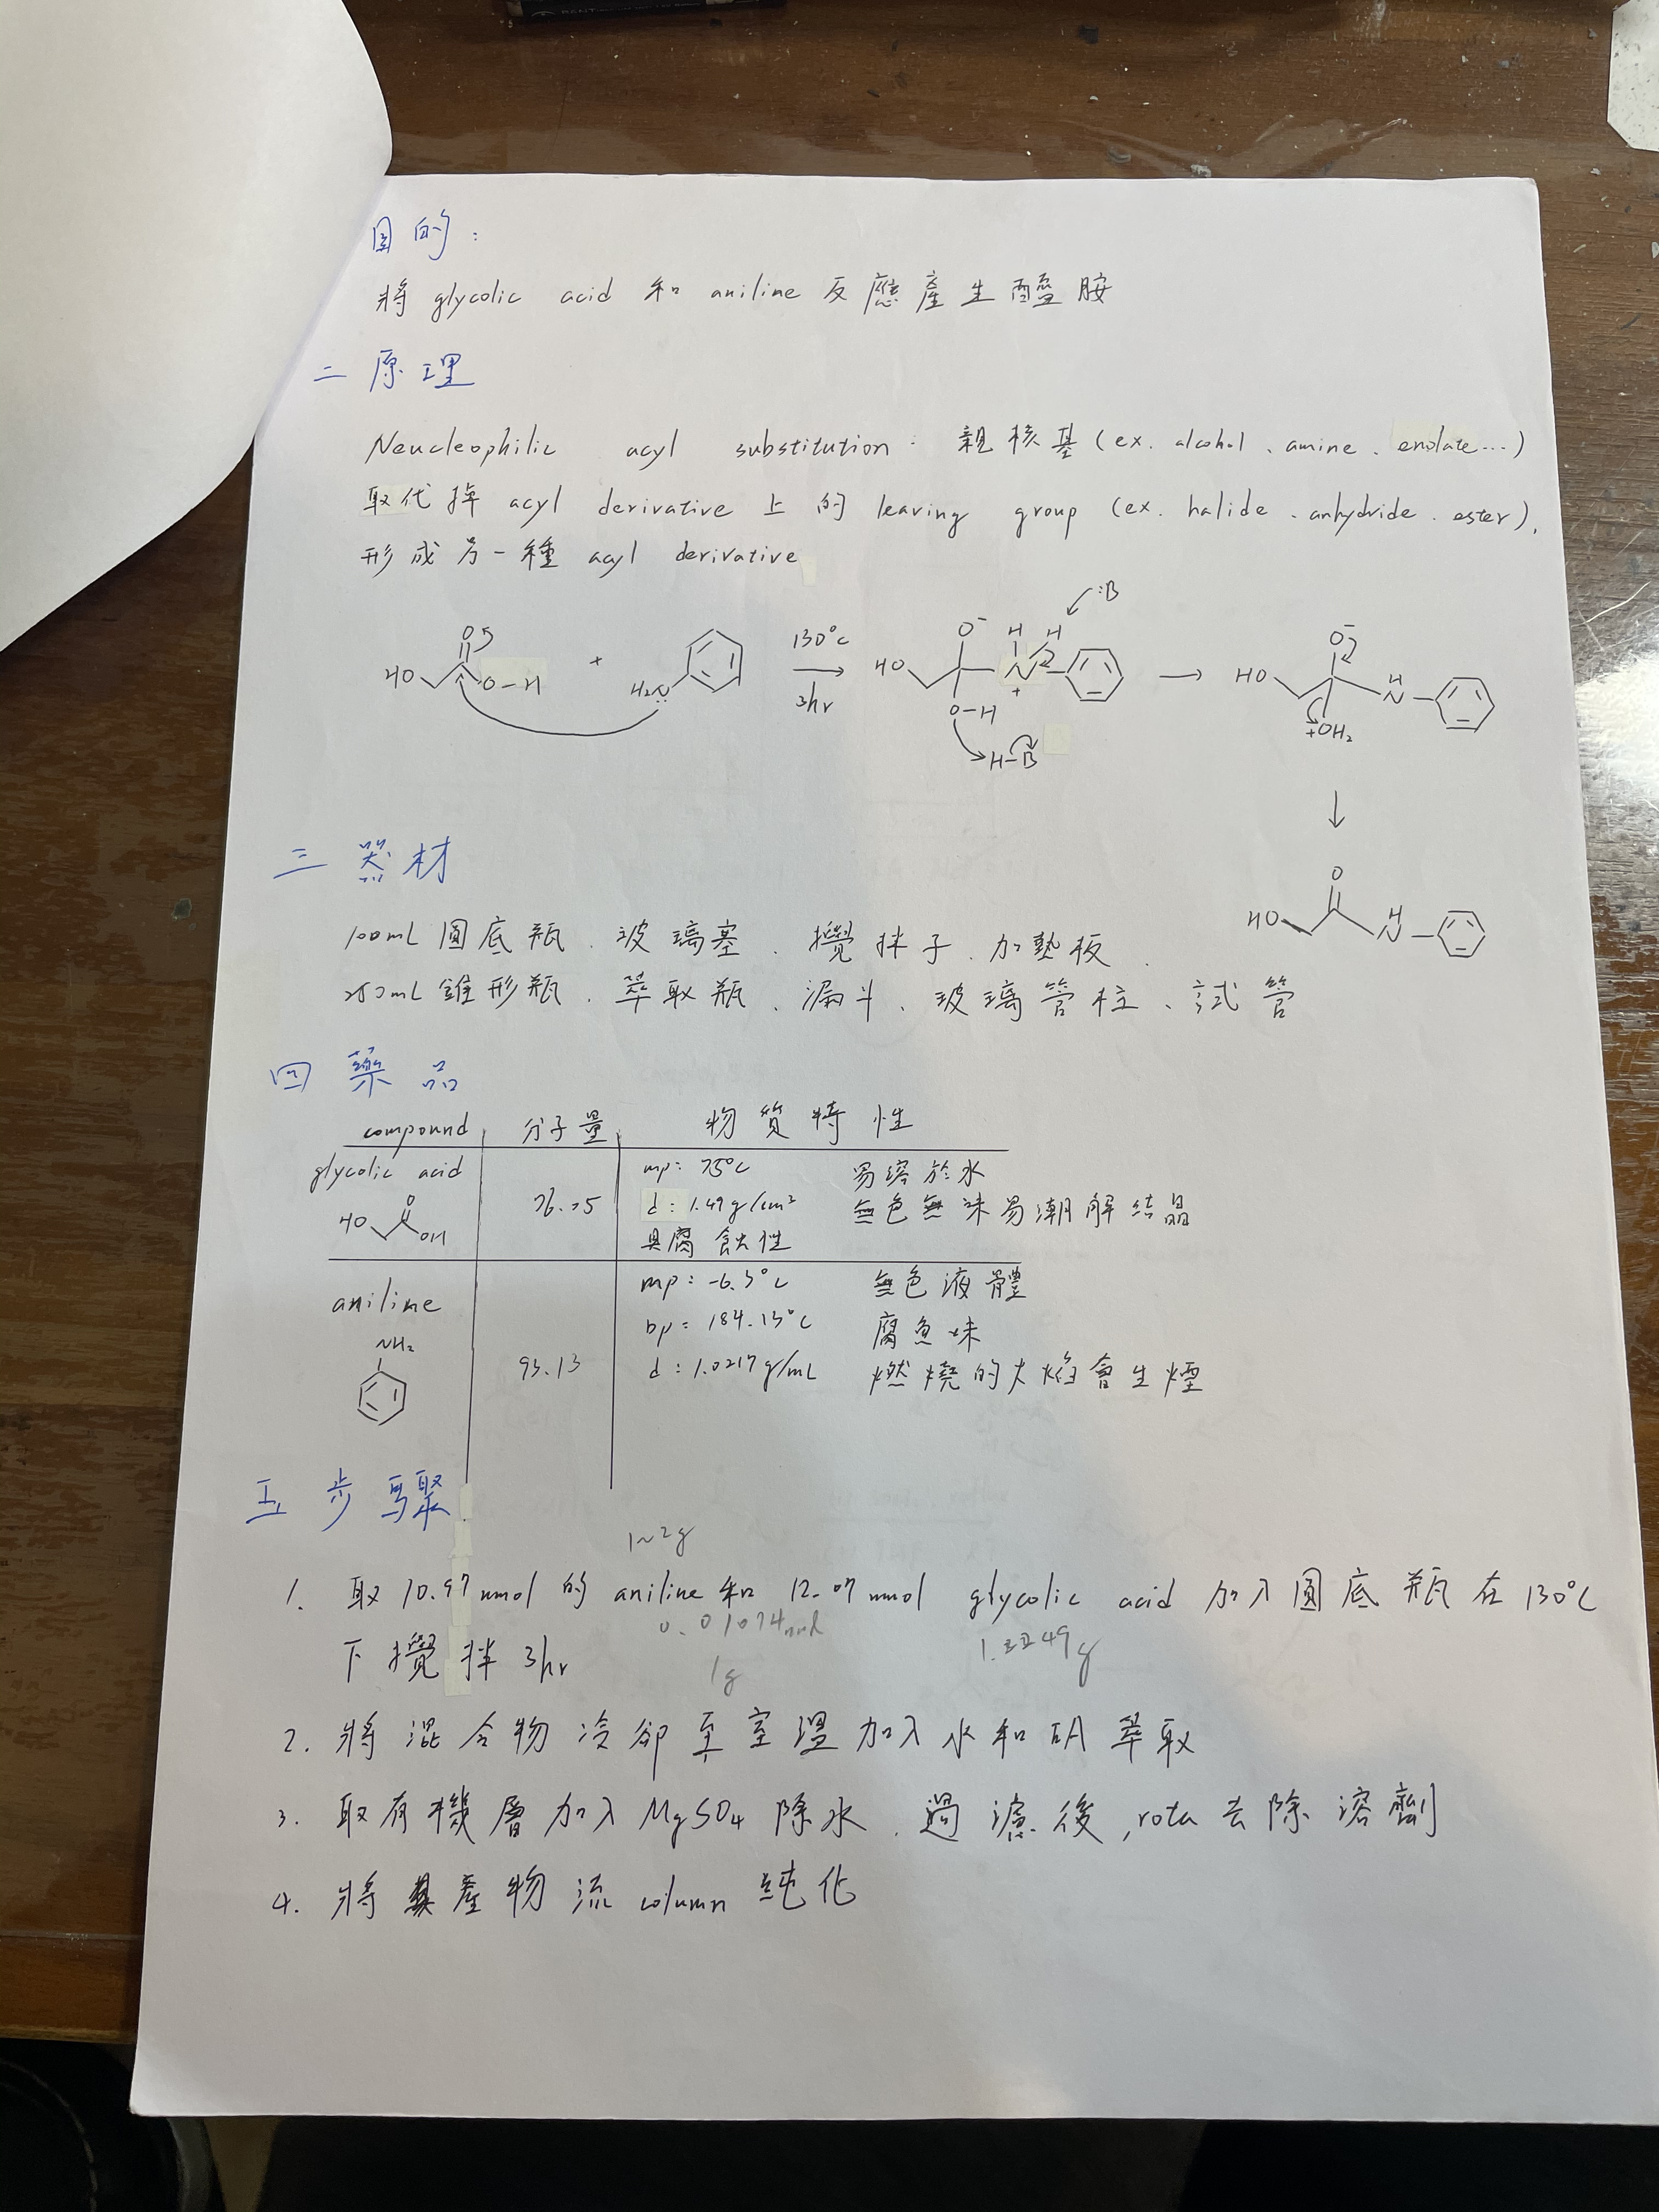 目的：
將 glycolic acid 和 aniline 反應產生醯胺
二 原理
Neucleophilic acyl substitution: 親核基 (ex. alcohol、amine、enolate...)
取代掉 acyl derivative 上的 leaving group (ex. halide、anhydride、ester),
形成另一種 acyl derivative
:B
O O⁻ H H O⁻
HO O-H + H₂N: 130°C 3hr HO N + HO H N
O-H +OH₂
H-B
三 器材
O
HO H N
100mL 圓底瓶、玻璃塞、攪拌子、加墊板、
250mL 錐形瓶、萃取瓶、漏斗、玻璃管柱、試管
四 藥品
compound 分子量 物質特性
glycolic acid 76.05 mp: 75°C 易溶於水
HO O OH d: 1.49g/cm³ 無色無味易潮解結晶
具腐蝕性
aniline mp: -6.3°C 無色液體
NH₂ bp: 184.13°C 腐魚味
93.13 d: 1.0217g/mL 燃燒的火焰會生煙
五 步驟
1~2g
1. 取 10.97 mmol 的 aniline 和 12.07 mmol glycolic acid 加入圓底瓶在 130°C
0.01074 mol
下攪拌 3hr 1g 1.2249g
2. 將混合物冷卻至室溫加入水和 EA 萃取
3. 取有機層加入 MgSO₄ 除水、過濾後, rota 去除溶劑
4. 將產物流 column 純化